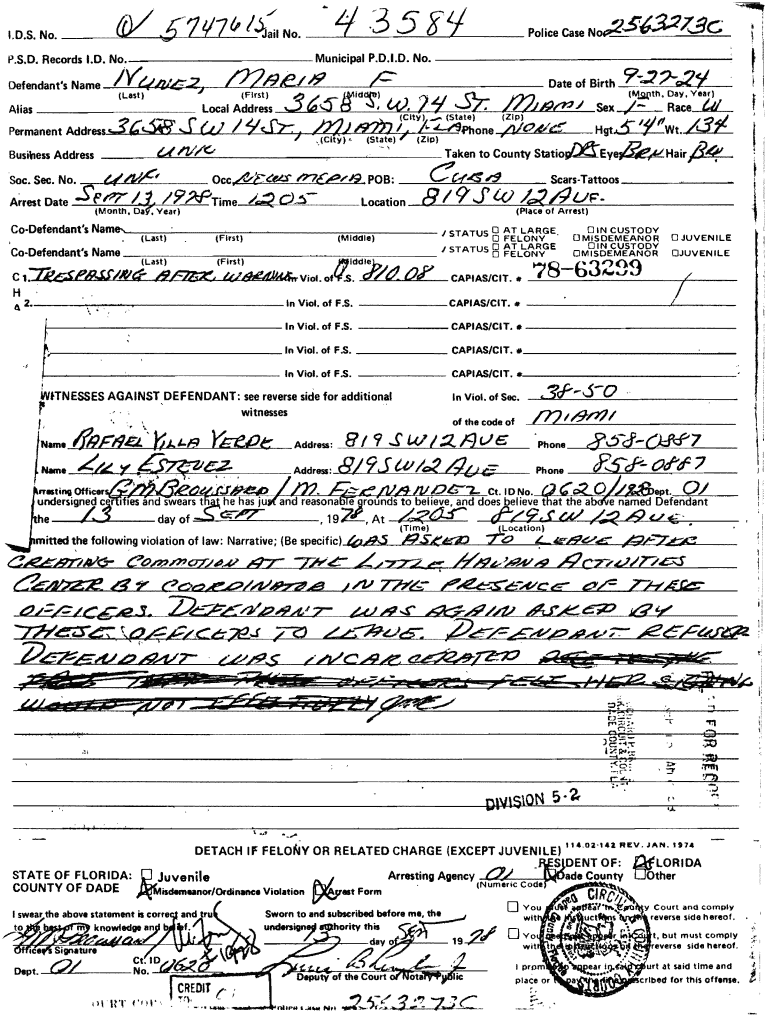 I.D.S. No. 5747615 Jail No. 43584 Police Case No. 2563273C
P.S.D. Records I.D. No. Municipal P.D.I.D. No.
Defendant's Name NUNEZ, MARIA F Date of Birth 9-27-24
(Last) (First) (Middle) (Month, Day, Year)
Alias Local Address 3658 S.W. 14 ST. MIAMI Sex F Race W
(City) (State) (Zip)
Permanent Address 3658 SW 14 ST, MIAMI, FLA Phone NONE Hgt. 5'4" Wt. 134
(City) (State) (Zip)
Business Address UNK Taken to County Station Eyes BRN Hair
Soc. Sec. No. UNK. Occ. NEWS MEDIA POB: CUBA Scars-Tattoos
Arrest Date SEPT 13, 1978 Time 1205 Location 819 SW 12 AVE.
(Month, Day, Year) (Place of Arrest)
Co-Defendant's Name / STATUS AT LARGE IN CUSTODY
(Last) (First) (Middle) FELONY MISDEMEANOR JUVENILE
Co-Defendant's Name / STATUS AT LARGE IN CUSTODY
(Last) (First) (Middle) FELONY MISDEMEANOR JUVENILE
C 1. TRESPASSING AFTER WARNING In Viol. of F.S. 810.08 CAPIAS/CIT. # 78-63299
H
A 2. In Viol. of F.S. CAPIAS/CIT. #
In Viol. of F.S. CAPIAS/CIT. #
In Viol. of F.S. CAPIAS/CIT. #
In Viol. of F.S. CAPIAS/CIT. #
WITNESSES AGAINST DEFENDANT: see reverse side for additional In Viol. of Sec. 38-50
witnesses of the code of MIAMI
Name RAFAEL VILLA VERDE Address: 819 SW 12 AVE Phone 858-0887
Name LILY ESTEVEZ Address: 819 SW 12 AVE Phone 858-0887
Arresting Officers G.M. BROUSSARD / M. FERNANDEZ Ct. ID No. 0620/ Dept. 01
undersigned certifies and swears that he has just and reasonable grounds to believe, and does believe that the above named Defendant
the 13 day of SEPT, 1978, At 1205 819 SW 12 AVE.
(Time) (Location)
mmitted the following violation of law: Narrative; (Be specific) WAS ASKED TO LEAVE AFTER
CREATING COMMOTION AT THE LITTLE HAVANA ACTIVITIES
CENTER BY COORDINATOR IN THE PRESENCE OF THESE
OFFICERS. DEFENDANT WAS AGAIN ASKED BY
THESE OFFICERS TO LEAVE. DEFENDANT REFUSED
DEFENDANT WAS INCARCERATED
OFFICERS FELT HER SIGNING
WOULD NOT
DIVISION 5-2
DETACH IF FELONY OR RELATED CHARGE (EXCEPT JUVENILE) 114.02-142 REV. JAN. 1974
RESIDENT OF: FLORIDA
STATE OF FLORIDA: Juvenile Arresting Agency 01 Dade County Other
COUNTY OF DADE Misdemeanor/Ordinance Violation Arrest Form (Numeric Code)
I swear the above statement is correct and true Sworn to and subscribed before me, the You must appear in County Court and comply
to the best of my knowledge and belief. undersigned authority this with the instructions on the reverse side hereof.
13 day of SEPT 1978 court, but must comply
Officer's Signature reverse side hereof.
Dept. 01 Ct. ID No. Deputy of the Court or Notary Public I promise to appear in said court at said time and
place or to pay the fine prescribed for this offense.
CREDIT
Police Case No. 2563273C